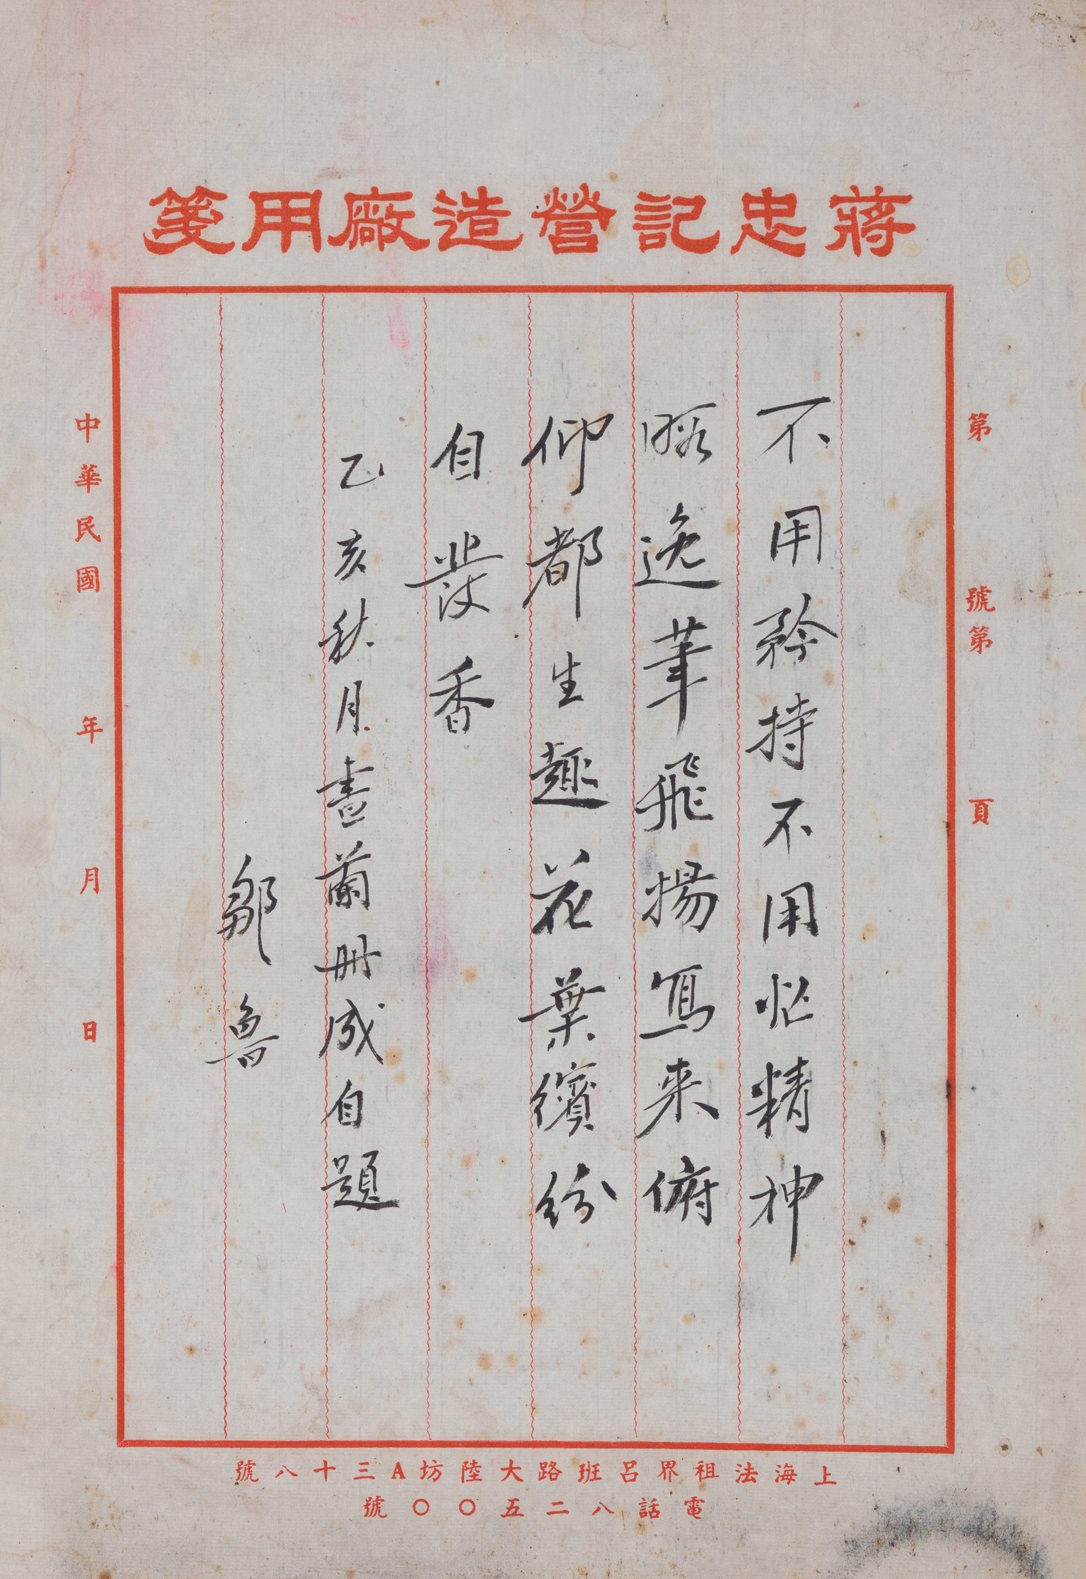 蔣忠記營造廠用箋
第　號第　頁
不用矜持不用忙精神
暇逸筆飛揚寫来俯
仰都生趣花葉繽紛
自發香
乙亥秋月畫蘭冊成自題
鄒魯
中華民國　年　月　日
上海法租界呂班路大陸坊A三十八號
電話八二五〇〇號